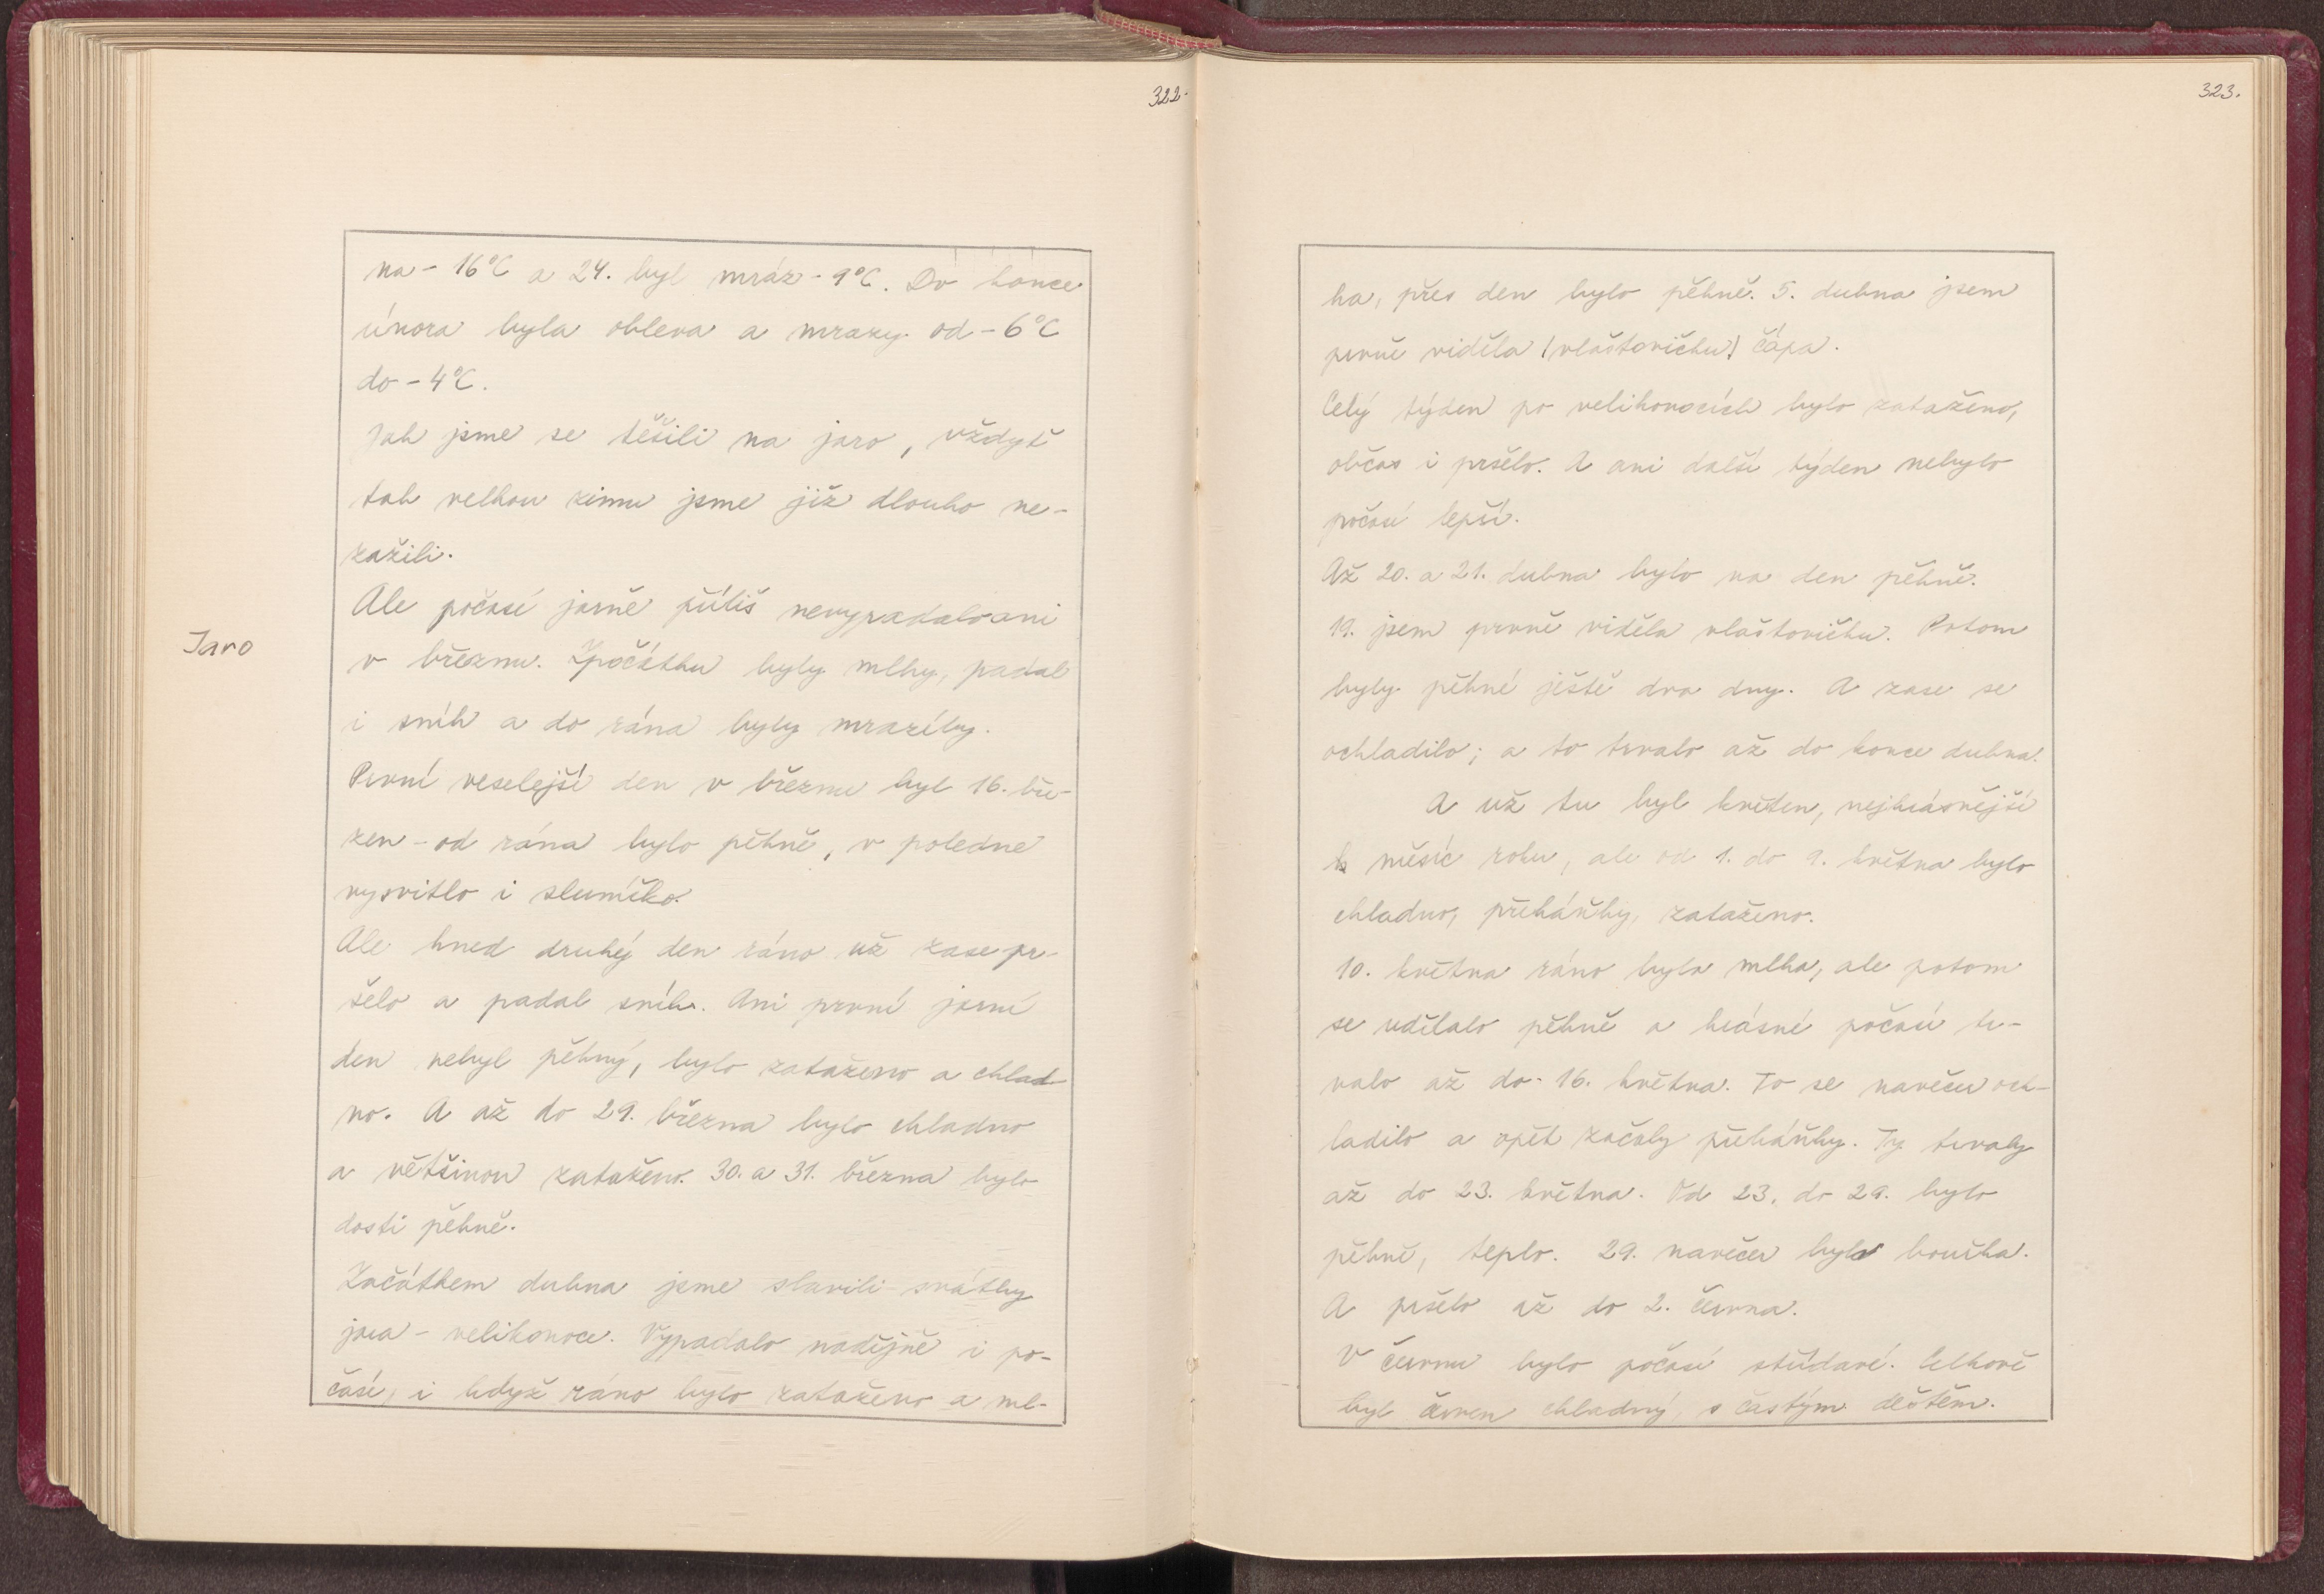 322.
na - 16°C a 24. byl mráz - 9°C. Do konce
února byla obleva a mrazy od - 6°C
do - 4°C.
Jak jsme se těšili na jaro, vždyť
tak velkou zimu jsme již dlouho ne-
zažili.
Jaro
Ale počasí jarně příliš nevypadalo ani
v březnu. Zpočátku byly mlhy, padal
i sníh a do rána byly mrazíky.
První veselejší den v březnu byl 16. bře-
zen - od rána bylo pěkně, v poledne
vysvitlo i sluníčko.
Ale hned druhý den ráno už zase pr-
šelo a padal sníh. Ani první jarní
den nebyl pěkný, bylo zataženo a chlad-
no. A až do 29. března bylo chladno
a většinou zataženo. 30. a 31. března bylo
dosti pěkně.
Začátkem dubna jsme slavili svátky
jara - velikonoce. Vypadalo nadějně i po-
časí, i když ráno bylo zataženo a ml-
323.
ha, přes den bylo pěkně. 5. dubna jsem
prvně viděla (vlaštovičku) čápa.
Celý týden po velikonocích bylo zataženo,
občas i pršelo. A ani další týden nebylo
počasí lepší.
Až 20. a 21. dubna bylo na den pěkně.
19. jsem prvně viděla vlaštovičku. Potom
byly pěkné ještě dva dny. A zase se
ochladilo; a to trvalo až do konce dubna.
A už tu byl květen, nejkrásnější
měsíc roku, ale od 1. do 9. května bylo
chladno, přeháňky, zataženo.
10. května ráno byla mlha, ale potom
se udělalo pěkně a krásné počasí tr-
valo až do 16. května. To se navečer och-
ladilo a opět začaly přeháňky. Ty trvaly
až do 23. května. Od 23. do 29. bylo
pěkně, teplo. 29. navečer byla bouřka.
A pršelo až do 2. června.
V červnu bylo počasí střídavé. Celkově
byl červen chladný, s častým deštěm.